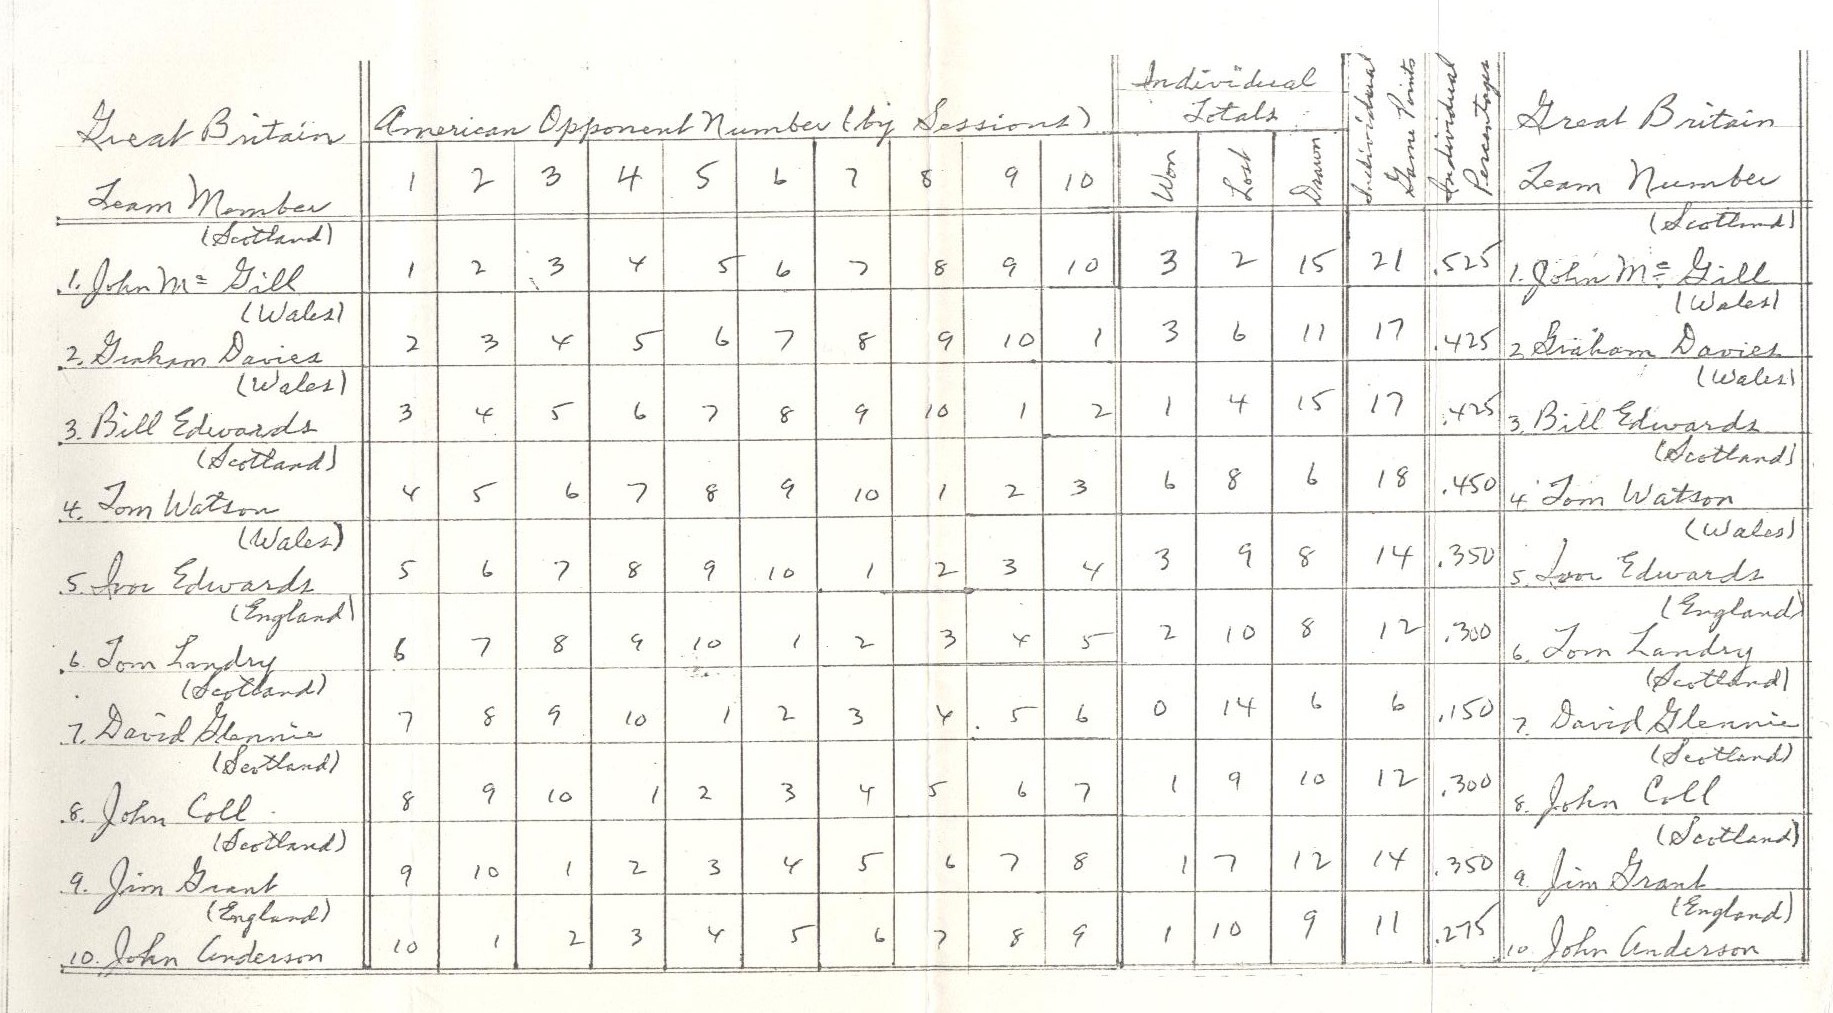 Great Britain
Team Member
American Opponent Number (by Sessions)
1 2 3 4 5 6 7 8 9 10
Individual
Totals
Won Lost Drawn
Individual
Game Points
Individual
Percentages
Great Britain
Team Number
(Scotland) (Scotland)
1. John Mc Gill 1 2 3 4 5 6 7 8 9 10 3 2 15 21 .525 1. John Mc Gill
(Wales) (Wales)
2. Graham Davies 2 3 4 5 6 7 8 9 10 1 3 6 11 17 .425 2 Graham Davies
(Wales) (Wales)
3. Bill Edwards 3 4 5 6 7 8 9 10 1 2 1 4 15 17 .425 3. Bill Edwards
(Scotland) (Scotland)
4. Tom Watson 4 5 6 7 8 9 10 1 2 3 6 8 6 18 .450 4 Tom Watson
(Wales) (Wales)
5. Ivor Edwards 5 6 7 8 9 10 1 2 3 4 3 9 8 14 .350 5. Ivor Edwards
(England) (England)
6. Tom Landry 6 7 8 9 10 1 2 3 4 5 2 10 8 12 .300 6. Tom Landry
(Scotland) (Scotland)
7. David Glennie 7 8 9 10 1 2 3 4 5 6 0 14 6 6 .150 7. David Glennie
(Scotland) (Scotland)
8. John Coll 8 9 10 1 2 3 4 5 6 7 1 9 10 12 .300 8. John Coll
(Scotland) (Scotland)
9. Jim Grant 9 10 1 2 3 4 5 6 7 8 1 7 12 14 .350 9. Jim Grant
(England) (England)
10. John Anderson 10 1 2 3 4 5 6 7 8 9 1 10 9 11 .275 10 John Anderson